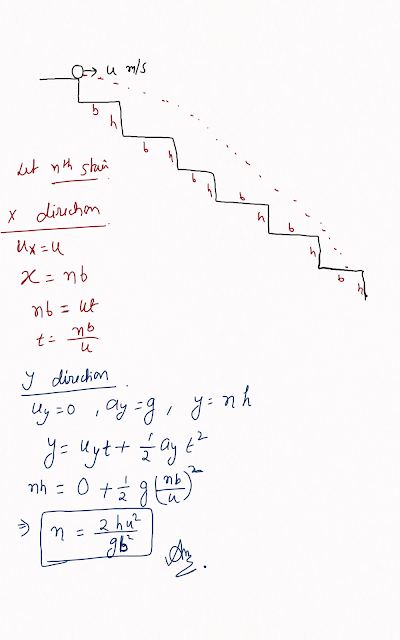 u m/s
b
h
b
h
b
h
b
h
b
h
b
h
Let nth stair
X direction
ux = u
x = nb
nb = ut
t = nb/u
Y direction
uy = 0 , ay = g , y = nh
y = uyt + 1/2 ay t²
nh = 0 + 1/2 g (nb/u)²
⇒ n = 2hu²/gb²
Ans.